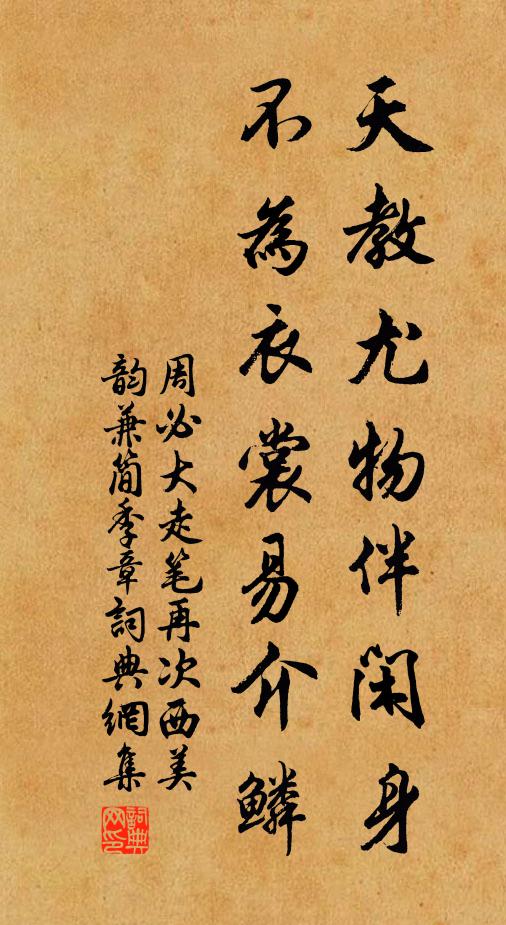 天教尤物伴闲身
不為衣裳易介鳞
周必大走笔再次西美
韵兼简季章詞典網集
詞典
网印